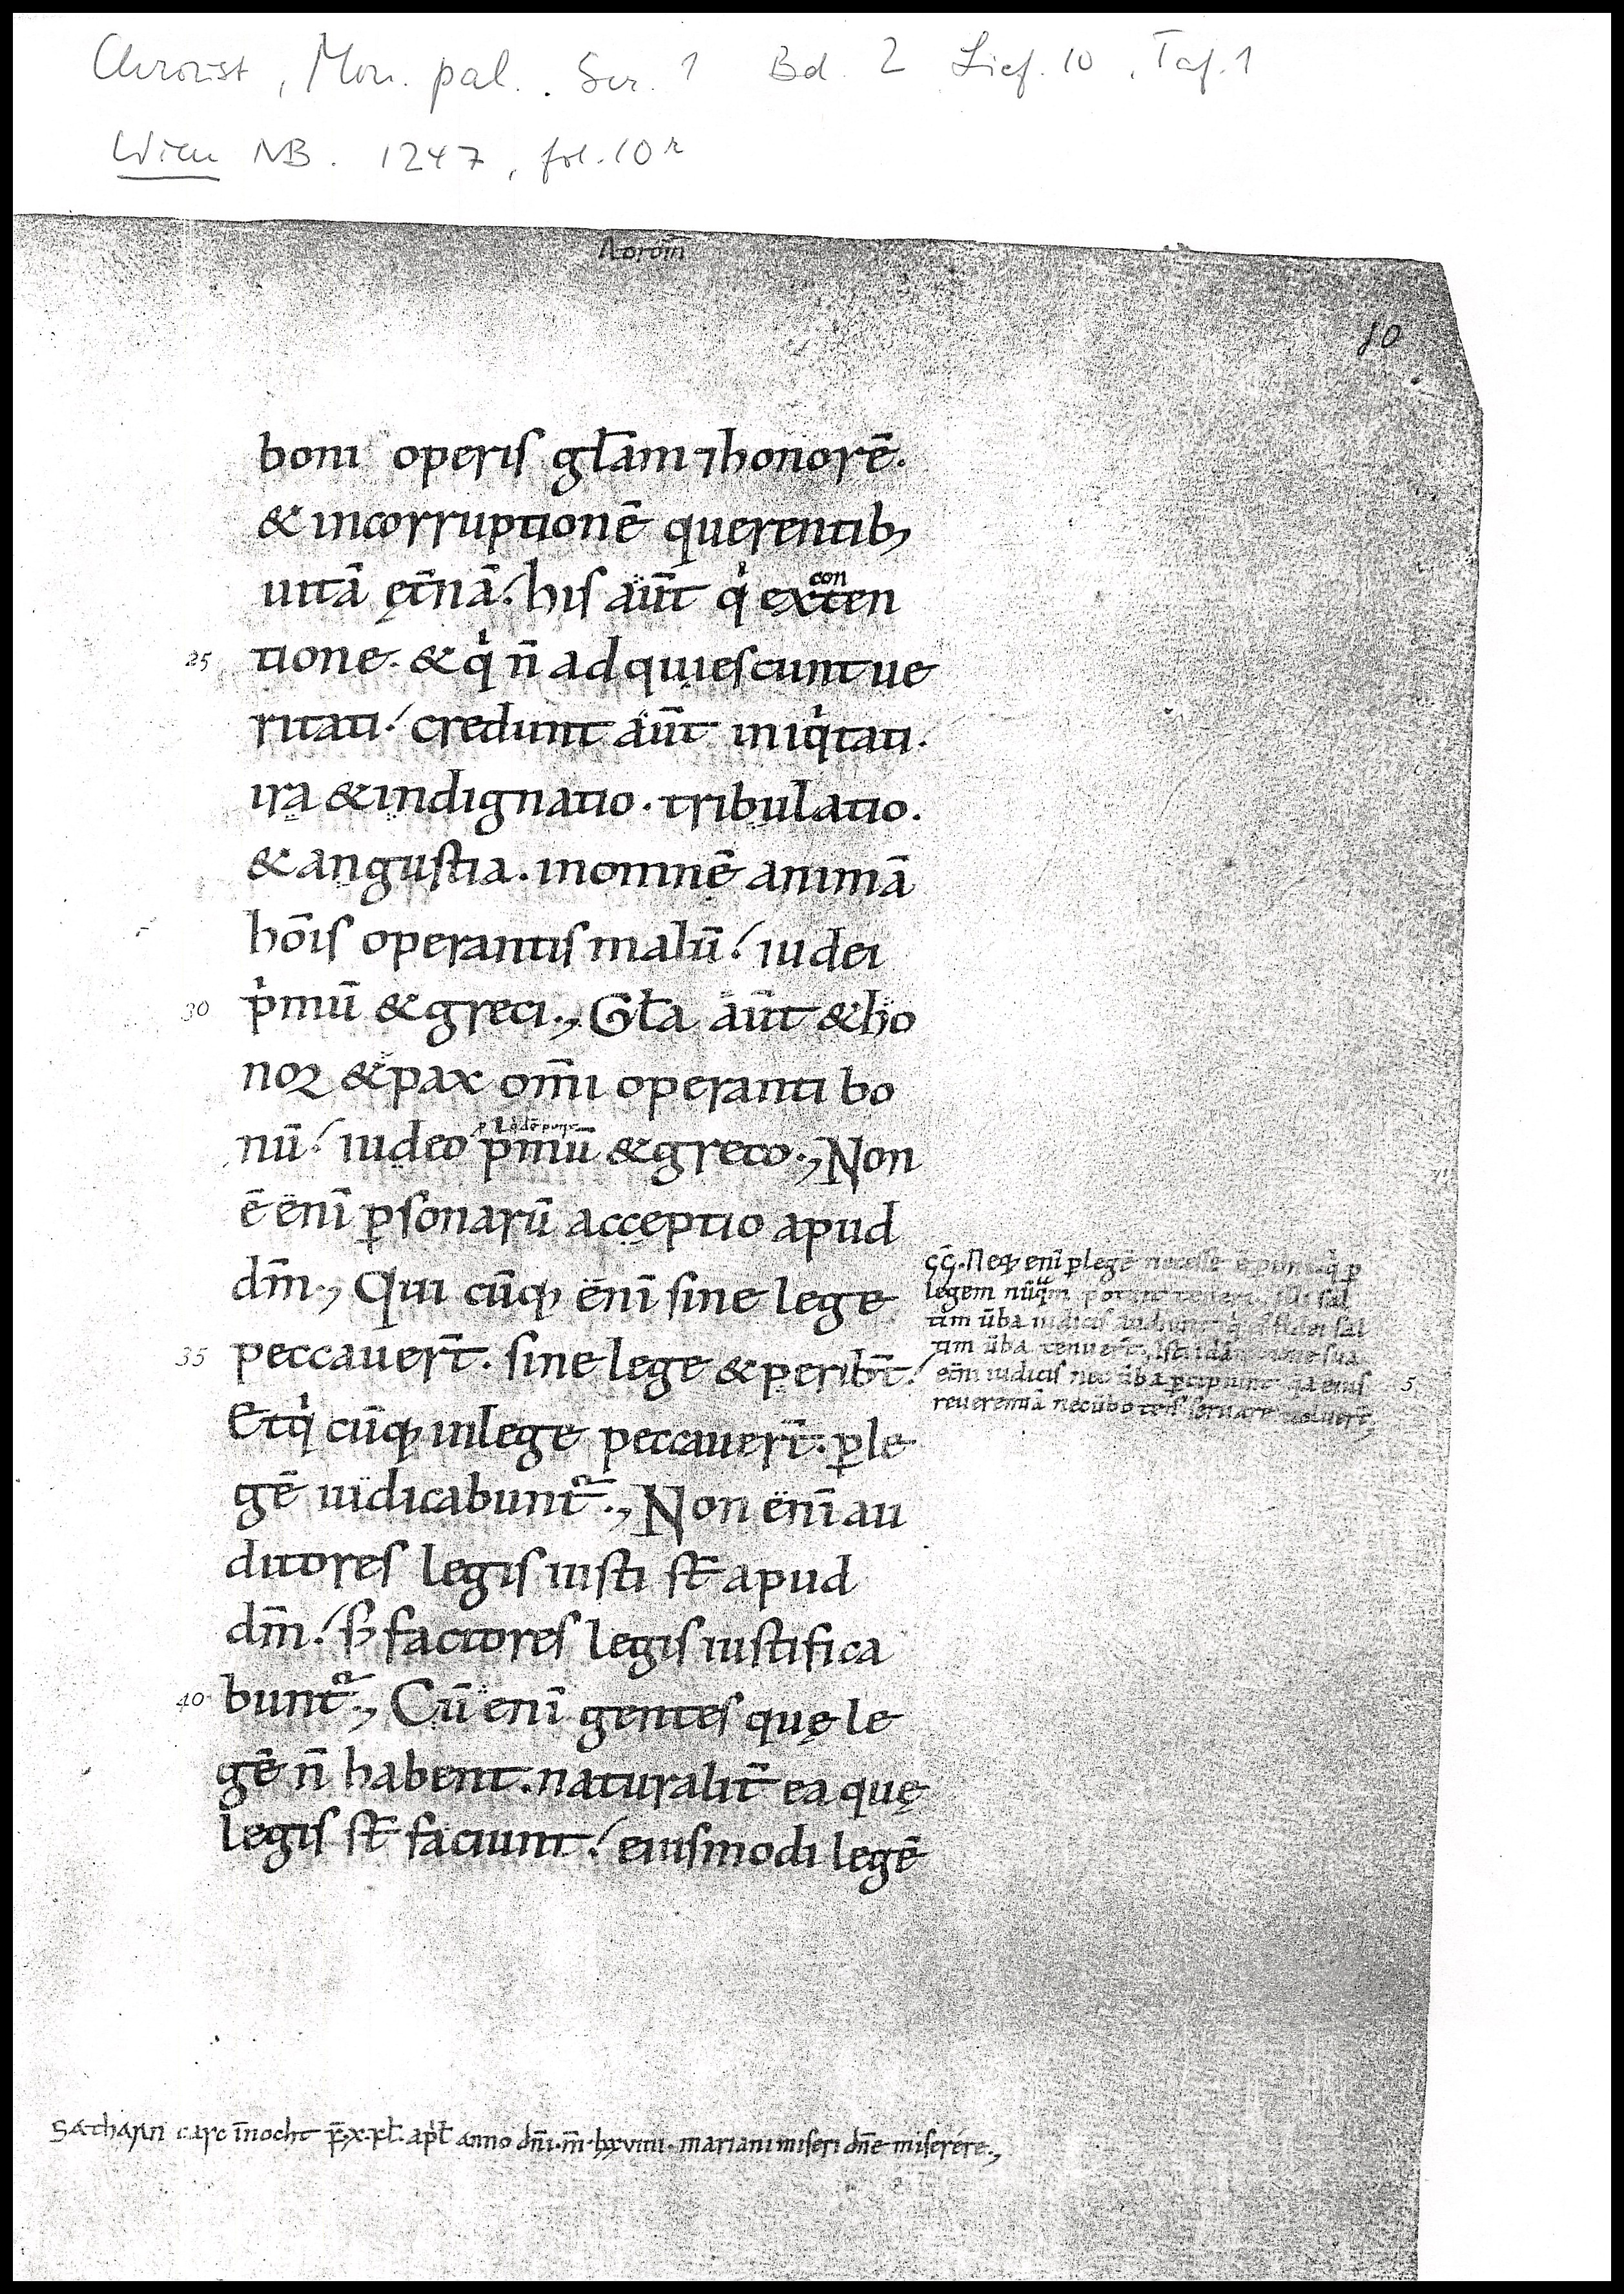 Chroust, Mon. pal. Ser. 1 Bd. 2 Lief. 10, Taf. 1
Wien NB. 1247, fol. 10r
Ad rom̄
10
boni operiſ gl̄am ⁊ honorē.
& incorruptionē querentib;
uitā ęt̄nā. hiſ aūt qi ex con ten
25 tione. & qi n̄ adquieſcunt ue
ritati. credunt aūt iniqitati.
ira & indignatio. tribulatio.
& anguſtia. in omnē animā
hōiſ operantiſ malū. iudei
30 pimū & greci., Gl̄a aūt & ho
noꝛ & pax om̄i operanti bo
nū. iudeo pimū & greco., Non
ē enī ꝑſonarū accęptio apud
dm̄., Qui cūq; enī ſine lege
35 peccauer̄t. ſine lege & perib̄t.
Et qi cūq; in lege peccauer̄t. ꝑ le
gē iudicabunt᷑., Non enī au
ditoreſ legiſ iuſti ſt̄ apud
dm̄. ſꝫ factoreſ legiſ iuſtifica
40 bunt᷑., Cū enī genteſ quę le
gē n̄ habent. naturalit̄ ea quę
legiſ ſt̄ faciunt. eiuſmodi legē
GG. Neq; enī ꝑ legē neceſſe ē qi ꝑ
legem nūqm̄ ſal
tim ūba iudiciſ ſal
tim ūba tenuer̄t, ſua
etm̄ iudiciſ nec ūba ꝑcipiunt qia eiuſ 5
reuerentiā nec ūbo ten' ſeruare noluer̄t,
Sathairn carc inocht p̄. x. kl̄. apl̄ anno dn̄i. m̄. lxxviiii. mariani miſeri dn̄e miſerere.,